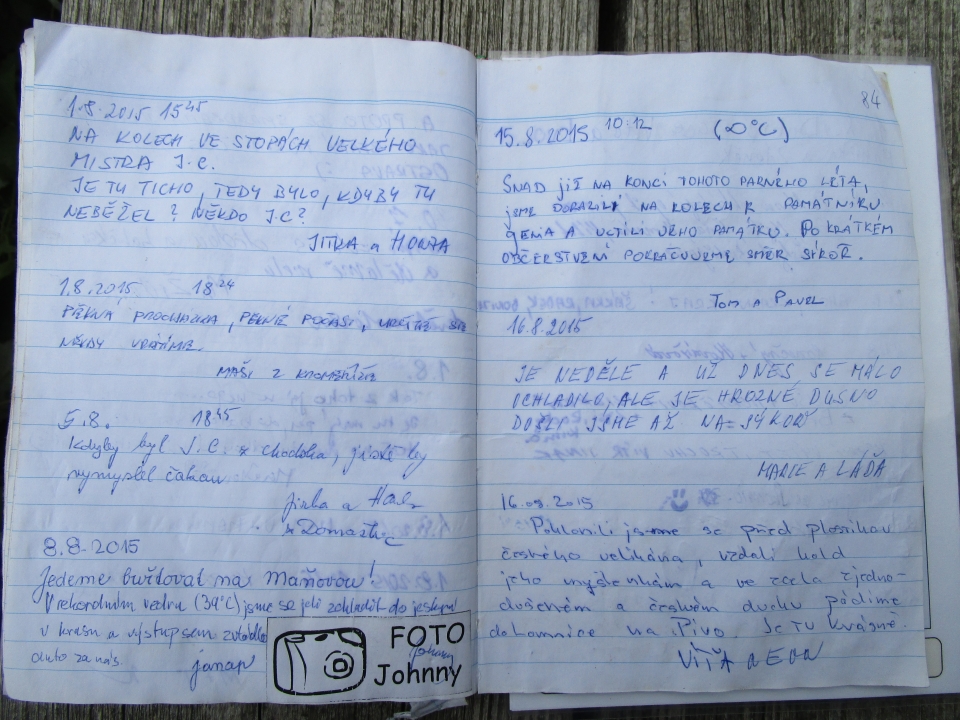 1.8.2015 15 45
NA KOLECH VE STOPÁCH VELKÉHO
MISTRA J.C.
JE TU TICHO, TEDY BYLO, KDYBY TU
NEBĚŽEL? NĚKDO J.C?
JITKA a HONZA
1.8.2015 18 24
PĚKNÁ PROCHÁZKA, PĚKNÉ POČASÍ, URČITĚ SE
NĚKDY VRÁTÍME.
MAŠI Z KROMĚŘÍŽE
5.8. 18 45
Kdyby byl J.C. z Chodska, jistě by
vymyslel čakan
Jirka a
z Domažlic
8.8.2015
Jedeme burtovat na Maňovou!
V rekordním vedru (39°C) jsme se jeli zchladit do jeskyní
v krasu a výstup sem zvládlo
auto za nás. janap
FOTO
Johnny
84
15.8.2015 10:12 (∞°C)
SNAD JIŽ NA KONCI TOHOTO PARNÉHO LÉTA,
JSME DORAZILI NA KOLECH K PAMÁTNÍKU
GENIA A UCTILI JEHO PAMÁTKU. PO KRÁTKÉM
OBČERSTVENÍ POKRAČUJEME SMĚR SÝKOŘ.
TOM A PAVEL
16.8.2015
JE NEDĚLE A UŽ DNES SE MÁLO
OCHLADILO, ALE JE HROZNÉ DUSNO
DOŠLI JSME AŽ NA SÝKOŘ
MARIE A LÁĎA
16.08.2015
Poklonili jsme se před plosinkou
českého velikána, vzdali hold
jeho myšlenkám a ve zcela zjedno-
dušeném a českém duchu půdíme
do hospodice na Pivo Je tu krásně.
VÍŤA